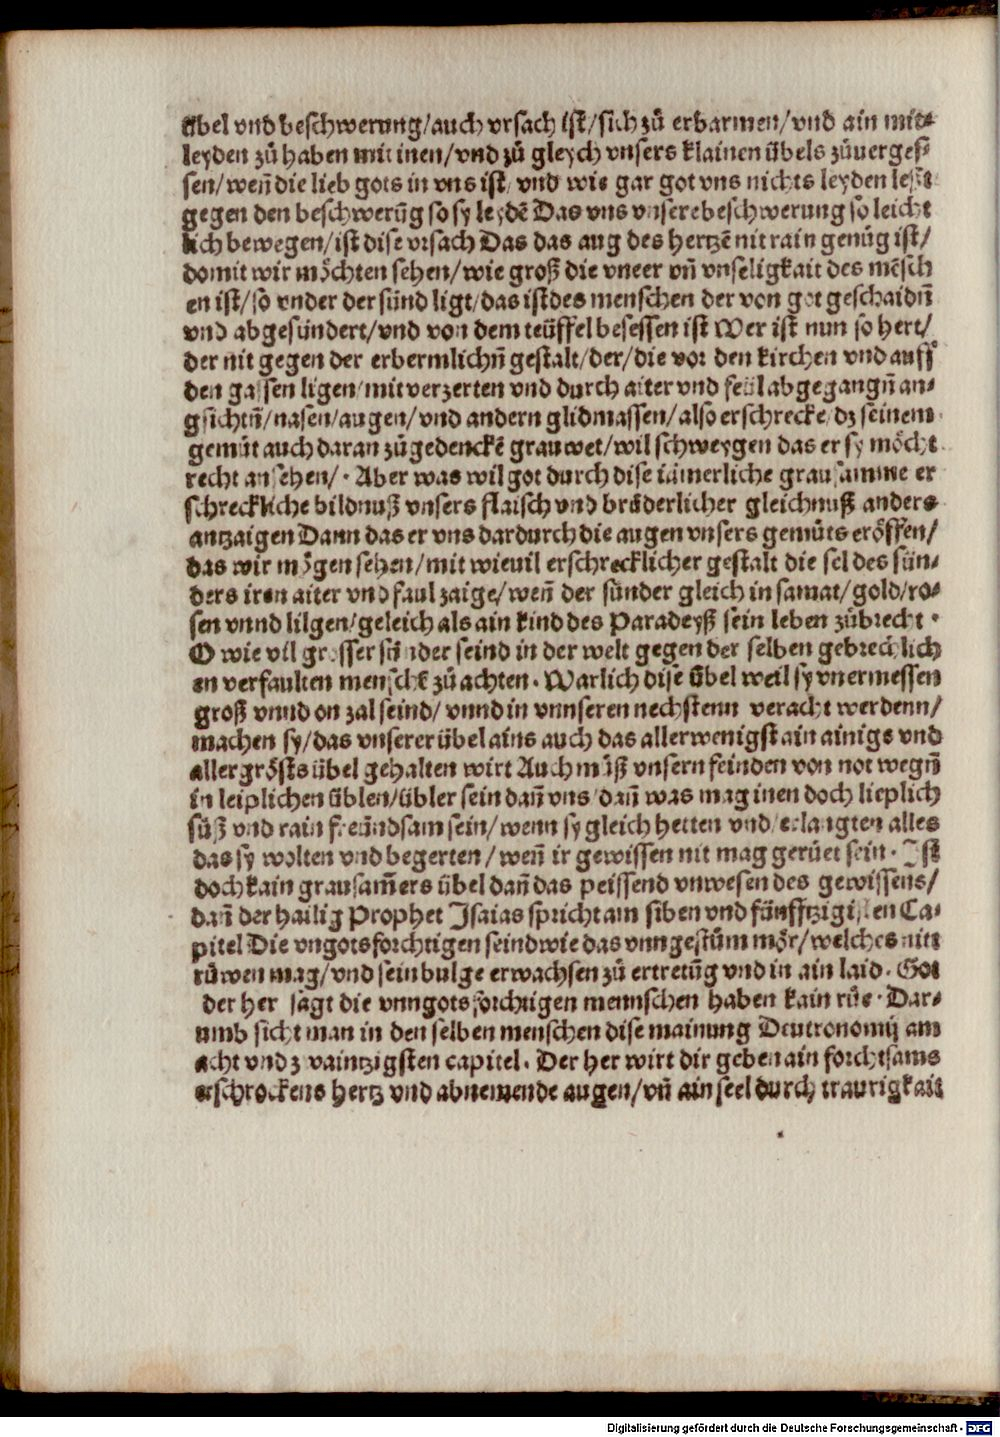 übel vnd beschwerung/auch vrsach ist/sich zů erbarmen/vnd ain mit⸗
leyden zů haben mit inen/vnd zů gleych vnsers klainen übels zůuerges⸗
sen/weñ die lieb gots in vns ist/vnd wie gar got vns nichts leyden lest
gegen den beschwerũg so sy leydẽ Das vns vnsere beschwerung so leicht
lich bewegen/ist dise vrsach Das das aug des hertzẽ nit rain genůg ist/
domit wir möchten sehen/wie groß die vneer vñ vnseligkait des mẽsch
en ist/so vnder der sünd ligt/das ist des menschen der von got geschaidñ
vnd abgesundert/vnd von dem teüffel besessen ist Wer ist nun so hert/
der nit gegen der erbermlichñ gestalt/der/die vor den kirchen vnd auff
den gassen ligen/mit verzerten vnd durch aiter vnd feül abgegangñ an⸗
gsichtñ/nasen/augen/vnd andern glidmassen/also erschrecke/dz seinem
gemüt auch daran zů gedenckẽ grauwet/wil schweygen das er sy möcht
recht ansehen/. Aber was wil got durch dise iämerliche grausamme er
schreckliche bildnuß vnsers flaisch vnd brůderlicher gleichnuß anders
antzaigen Dann das er vns dardurch die augen vnsers gemüts eröffen/
das wir mögen sehen/mit wieuil erschrecklicher gestalt die sel des sün⸗
ders iren aiter vnd faul zaige/weñ der sünder gleich in samat/gold/ro⸗
sen vnnd lilgen/geleich als ain kind des Paradeyß sein leben zůbrecht .
O wie vil grosser sünder seind in der welt gegen der selben gebrechlich
en verfaulten menschẽ zů achten. Warlich dise übel weil sy vnermessen
groß vnnd on zal seind/ vnnd in vnnseren nechstenn veracht werdenn/
machen sy/das vnserer übel ains auch das allerwenigst ain ainigs vnd
aller grösts übel gehalten wirt Auch můß vnsern feinden von not wegñ
in leiplichen üblen/übler sein dañ vns/dañ was mag inen doch lieplich
süß vnd rain freündsam sein/wenn sy gleich hetten vnd erlangten alles
das sy wolten vnd begerten/weñ ir gewissen nit mag gerüet sein. Ist
doch kain grausam̃ers übel dañ das peissend vnwesen des gewissens/
dañ der hailig Prophet Isaias spricht am siben vnd fünfftzigisten Ca⸗
pitel Die vngotsforchtigen seind wie das vnngestüm mör/welches nitt
rüwen mag/vnd sein bulge erwachsen zů ertretũg vnd in ain laid. Got
der her sagt die vnngotsforchtigen mennschen haben kain rüe. Dar⸗
umb sicht man in den selben menschen dise mainung Deutronomij am
acht vnd zwaintzigsten capitel. Der her wirt dir geben ain forchtsams
erschrockens hertz vnd abnemende augen/vñ ain seel durch traurigkait
Digitalisierung gefördert durch die Deutsche Forschungsgemeinschaft - DFG